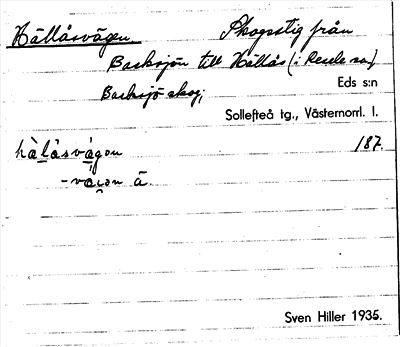 Hällåsvägen Skogsstig från
Backsjön till Hällås (i Resele sn)
Backsjö skog;
Eds s:n
Sollefteå tg., Västernorrl. l.
hä̀lå̀svä́gən 187.
-vä́ɡ̨ən ä.
Sven Hiller 1935.